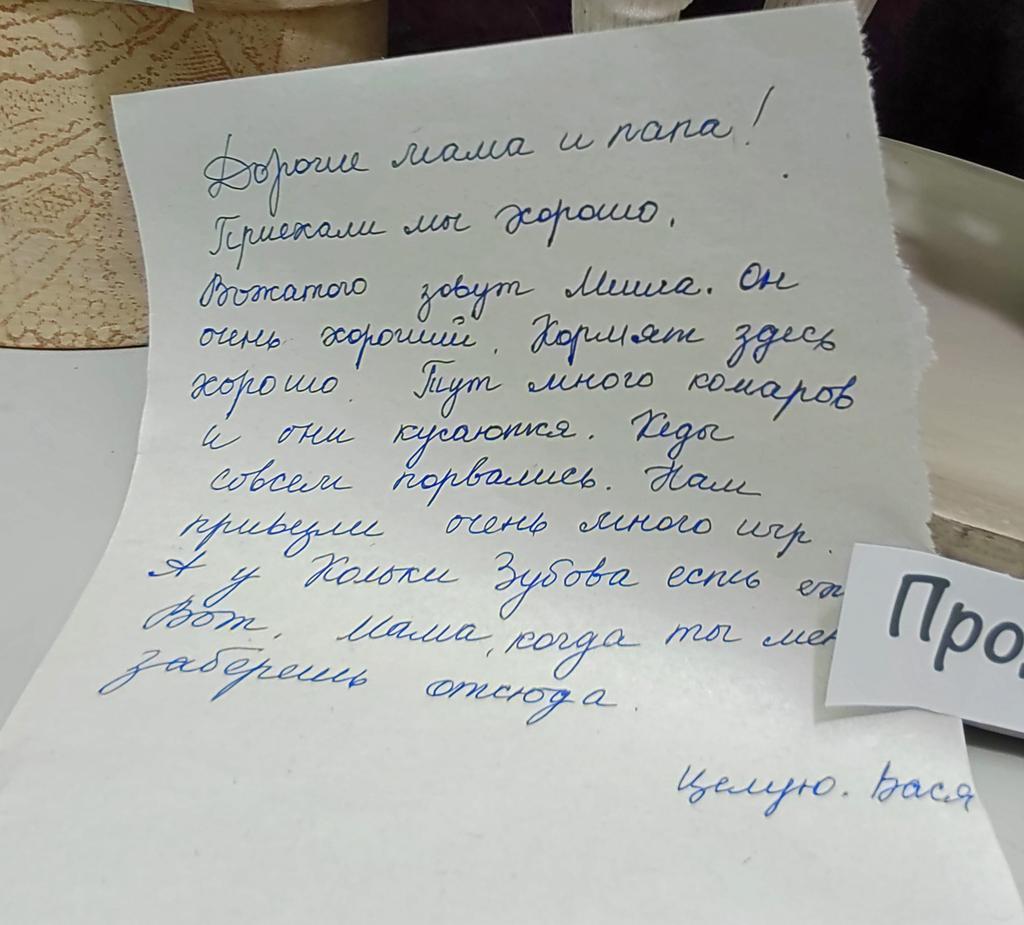 Дорогие мама и папа!
Приехали мы хорошо.
Вожатого зовут Миша. Он
очень хороший. Кормят здесь
хорошо. Тут много комаров
и они кусаются. Кеды
совсем порвались. Нам
привезли очень много игр.
А у Кольки Зубова есть
Вот. Мама, когда ты
заберешь отсюда.
Целую. Вася